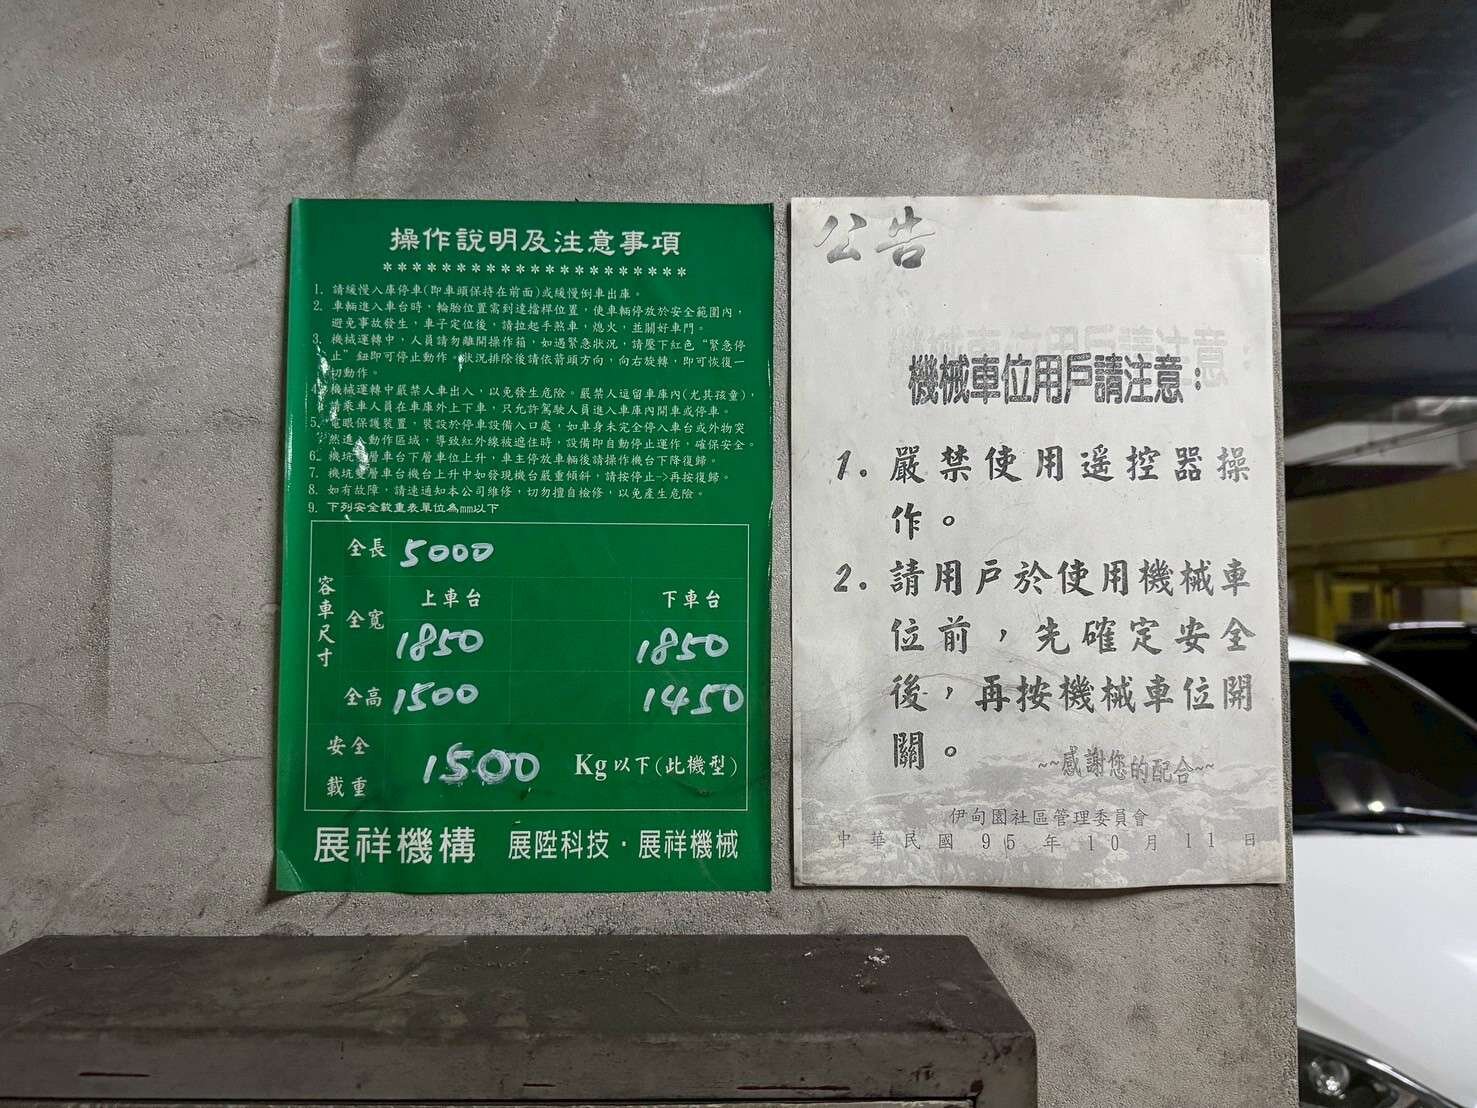 操作說明及注意事項
********************
1. 請緩慢入庫停車(即車頭保持在前面)或緩慢倒車出庫。
2. 車輛進入車台時,輪胎位置需到達擋桿位置,使車輛停放於安全範圍內,
避免事故發生,車子定位後,請拉起手煞車,熄火,並關好車門。
3. 機械運轉中,人員請勿離開操作箱,如遇緊急狀況,請壓下紅色“緊急停
止”鈕即可停止動作。狀況排除後請依箭頭方向,向右旋轉,即可恢復一
切動作。
機械運轉中嚴禁人車出入,以免發生危險。嚴禁人逗留車庫內(尤其孩童),
請乘車人員在車庫外上下車,只允許駕駛人員進入車庫內開車或停車。
5. 電眼保護裝置,裝設於停車設備入口處,如車身未完全停入車台或外物突
然進入動作區域,導致紅外線被遮住時,設備即自動停止運作,確保安全。
6. 機坑雙層車台下層車位上升,車主停放車輛後請操作機台下降復歸。
7. 機坑雙層車台機台上升中如發現機台嚴重傾斜,請按停止->再按復歸。
8. 如有故障,請速通知本公司維修,切勿擅自檢修,以免產生危險。
9. 下列安全載重表單位為mm以下
容車尺寸
全長 5000
上車台 下車台
全寬 1850 1850
全高 1500 1450
安全載重 1500 Kg以下(此機型)
展祥機構 展陞科技·展祥機械
公告
機械車位用戶請注意:
1. 嚴禁使用遥控器操
作。
2. 請用戶於使用機械車
位前,先確定安全
後,再按機械車位開
關。
~~感謝您的配合~~
伊甸園社區管理委員會
中華民國95年10月11日